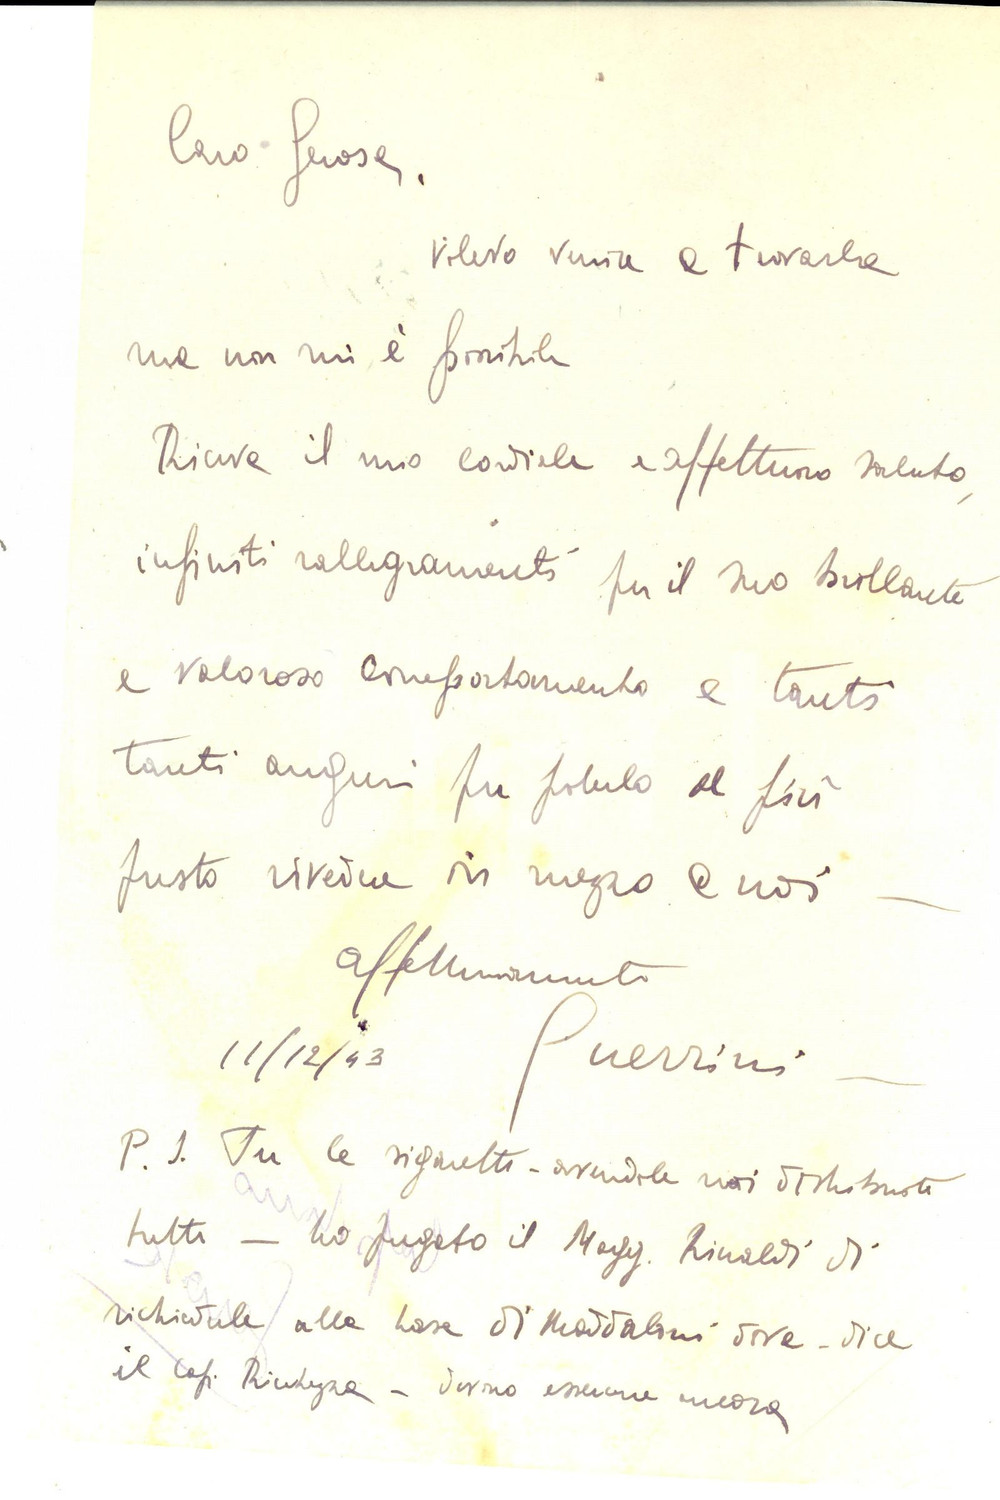 Caro Gerosa,
volevo venire a trovarla
ma non mi è possibile
Riceva il mio cordiale e affettuoso saluto,
infiniti rallegramenti per il suo brillante
e valoroso comportamento e tanti
tanti auguri per poterlo al più
presto rivedere in mezzo a noi —
affettuosamente
11/12/43 Guerrini —
P. S. Per le sigarette - avendole noi distribuite
tutte — ho pregato il Magg. Rinaldi di
richiederle alla base di Maddaloni dove - dice
il Cap. - devono essercene ancora